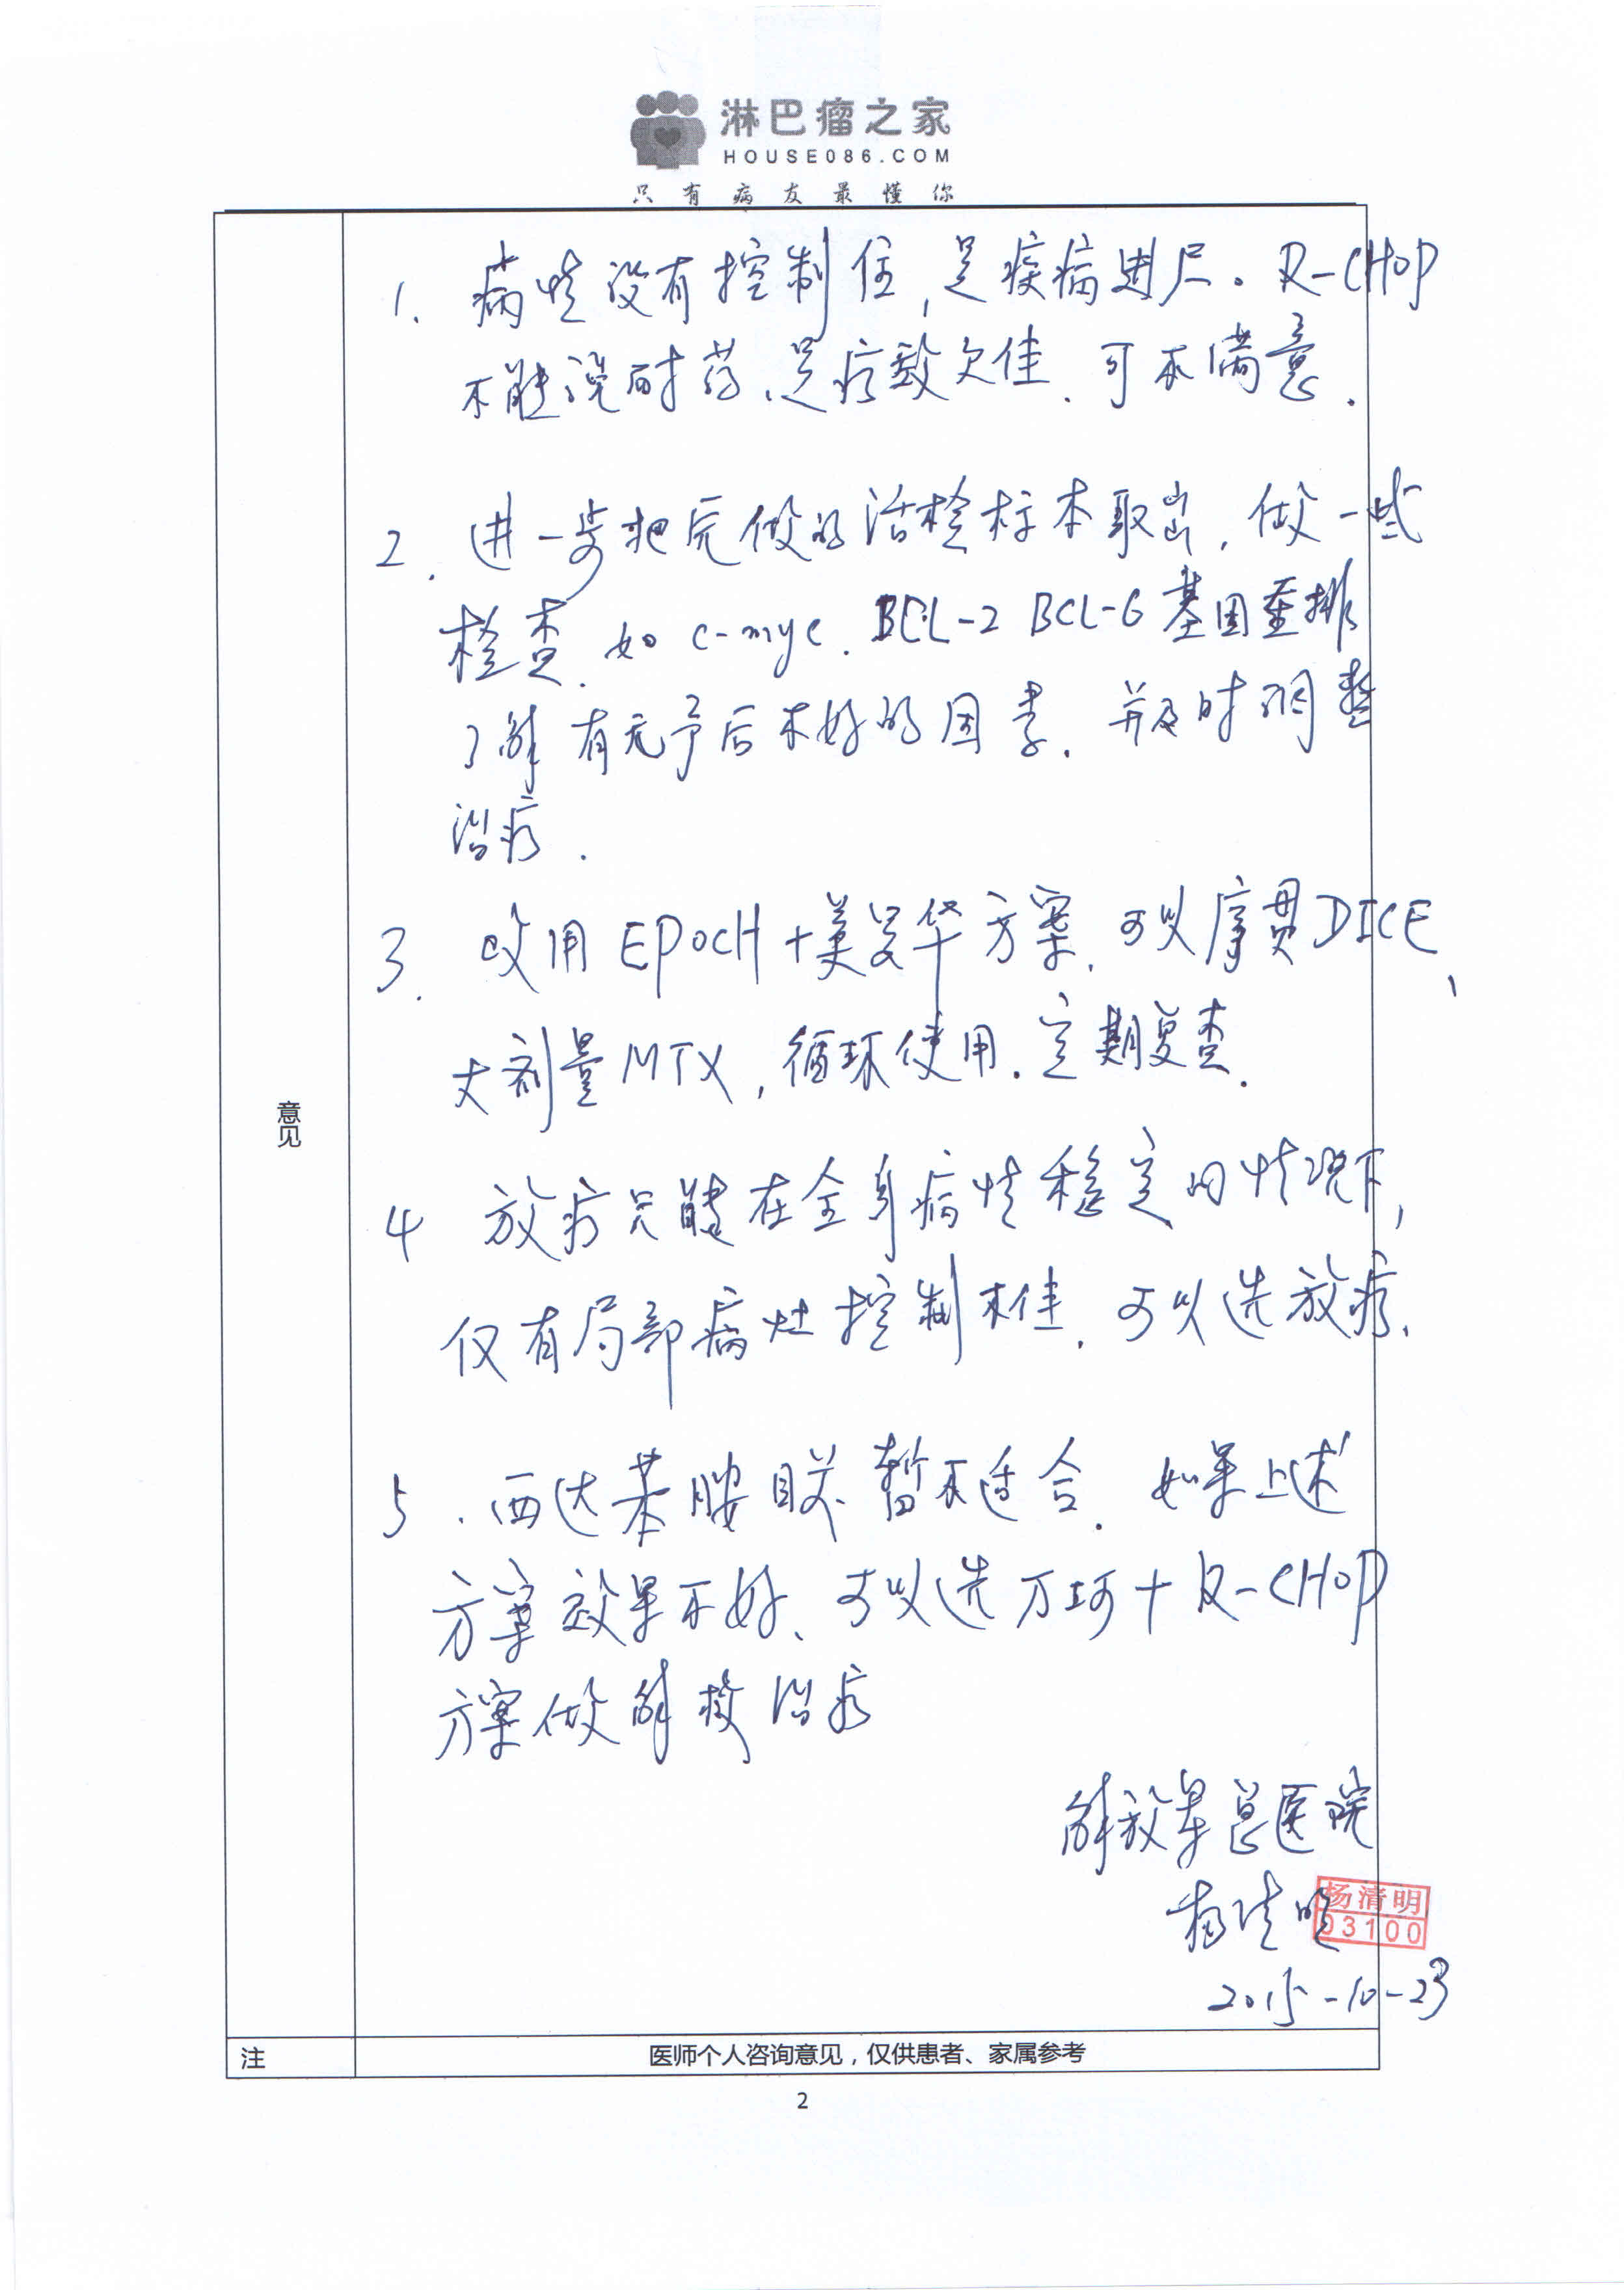 淋巴瘤之家
HOUSE086.COM
只有病友最懂你
意见
1. 病情没有控制住,是疾病进展。R-CHOP
不能说耐药、是疗效欠佳、可不满意.
2. 进一步把完做的活检标本取出,做一些
检查.如 c-myc. BCL-2 BCL-6 基因重排
了解有无予后不好的因素.并及时调整
治疗.
3. 改用 EPOCH+美罗华方案.可以序贯DICE、
大剂量MTX,循环使用.定期复查.
4 放疗只能在全身病情稳定的情况下,
仅有局部病灶控制不佳.可以选放疗.
5. 西达苯胺目前暂不适合.如果上述
方案效果不好、可以选万珂+R-CHOP
方案做解救治疗
解放军总医院
杨清明
杨清明
03100
2015-10-23
注
医师个人咨询意见,仅供患者、家属参考
2